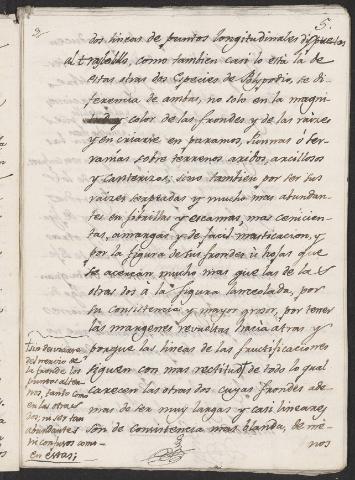 2
5.
dos lineas de puntos longitudinales dispuestos
al trasbello, como tambien casi lo está la de
estas otras dos Especies de Polypodio, se di-
ferencia de ambas, no solo en la magni-
y color de las frondes y de las raizes
y en criarse en paramos, Punas ó ter-
ramas sobre terrenos aridos, arcillosos
y canterizos; sino tambien por ser sus
raizes serpiadas y mucho mas abundan-
tes en fibrillas y escamas, mas cenicien-
tas, amargas y de facil masticacion, y
por la figura de sus frondes ú hojas que
se acercan mucho mas que las de las
otras dos à la figura lanceolada, por
su consistencia y mayor grosor, por tener
las margenes revueltas hacia atras y
porque las lineas de las fructificaciones
siguen con mas rectitud; de todo lo qual
carecen las otras dos cuyas frondes ade-
mas de ser muy largas y casi lineares
son de consistencia mas blanda, de me-
nos
del nervio de
la fronde los
puntos alter-
nos, tanto como
en las otras
dos, ni ser tan
abundantes
ni confusos como
en éstas;